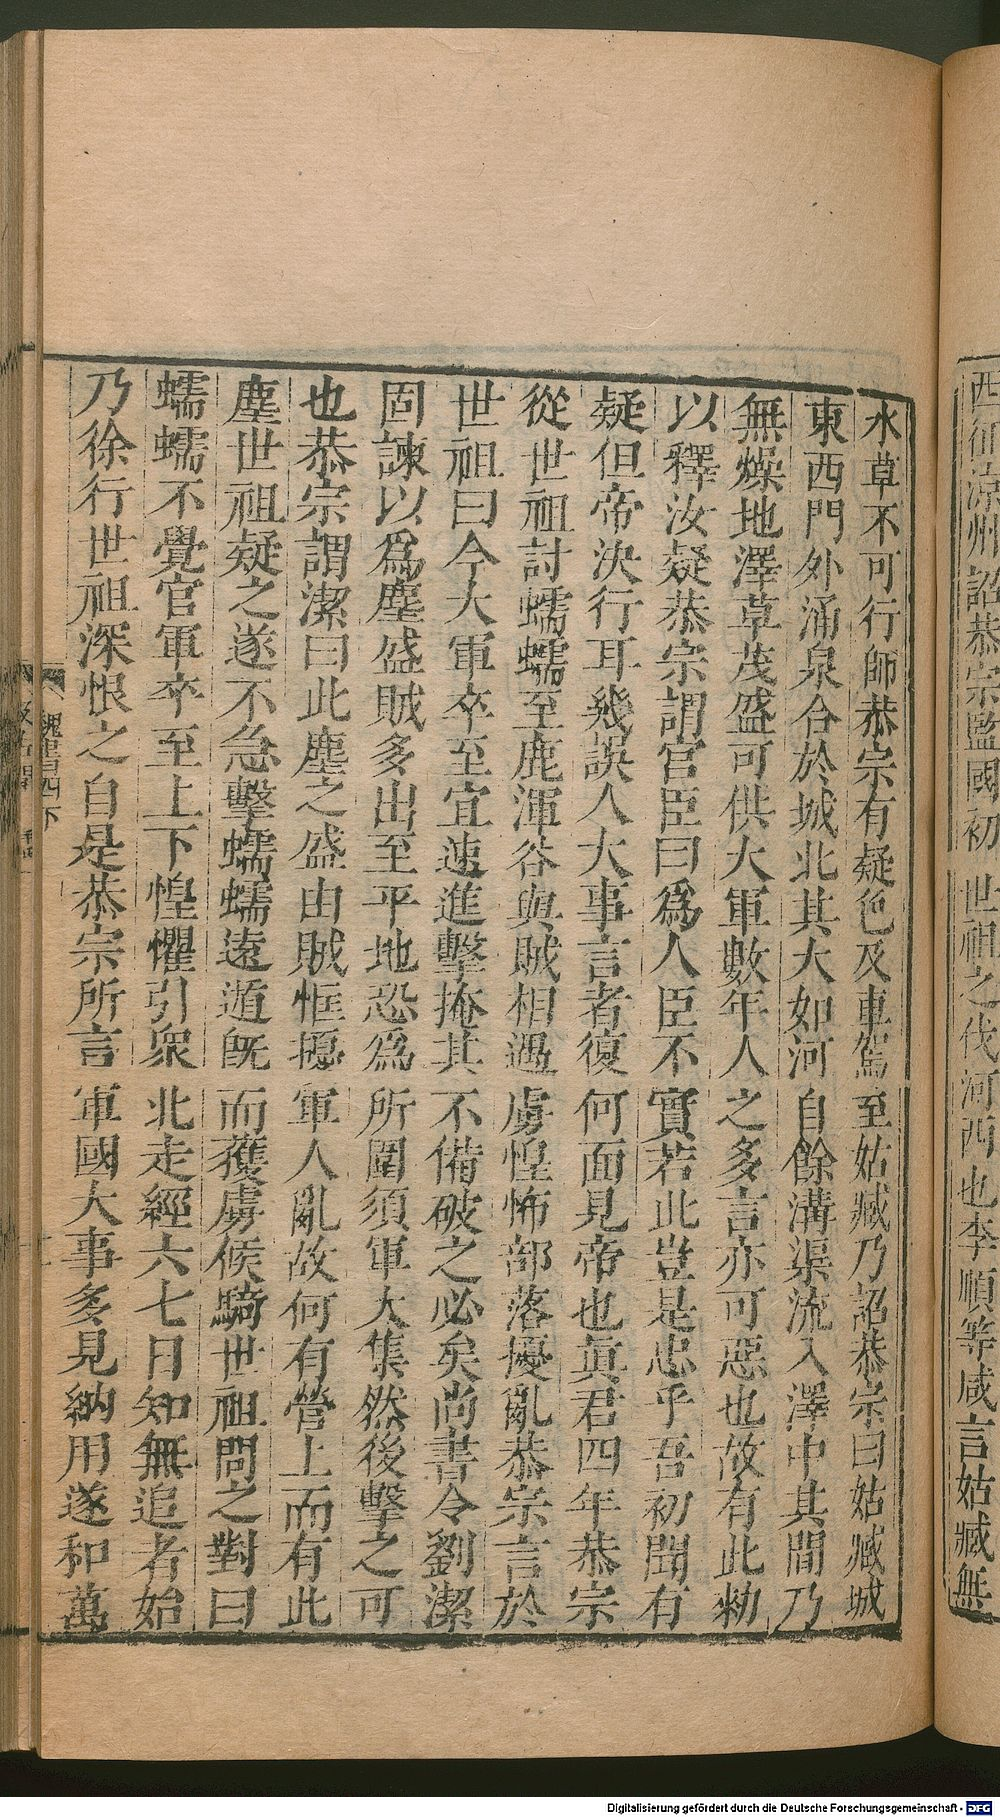 西征涼州詔恭宗監國初世祖之伐河西也李順等咸言姑臧無
水草不可行師恭宗有疑色及車駕至姑臧乃詔恭宗曰姑臧城
東西門外涌泉合於城北其大如河自餘溝渠流入澤中其間乃
無燥地澤草茂盛可供大軍數年人之多言亦可惡也故有此勑
以釋汝疑恭宗謂官臣曰爲人臣不實若此豈是忠乎吾初聞有
疑但帝決行耳幾誤人大事言者復何面見帝也眞君四年恭宗
從世祖討蠕蠕至鹿渾谷與賊相遇虜惶怖部落擾亂恭宗言於
世祖曰今大軍卒至宜速進擊掩其不備破之必矣尚書令劉潔
固諫以爲塵盛賊多出至平地恐爲所圍須軍大集然後擊之可
也恭宗謂潔曰此塵之盛由賊恇擾軍人亂故何有營上而有此
塵世祖疑之遂不急擊蠕蠕遠遁旣而獲虜候騎世祖問之對曰
蠕蠕不覺官軍卒至上下惶懼引衆北走經六七日知無追者始
乃徐行世祖深恨之自是恭宗所言軍國大事多見納用遂和萬
魏書四下
Digitalisierung gefördert durch die Deutsche Forschungsgemeinschaft - DFG